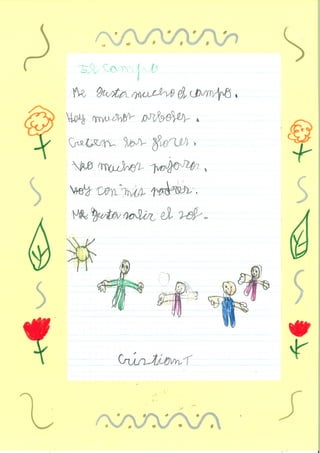 El campo
Me gusta mucho el campo.
Hay muchos arboles.
Crecen las flores.
Veo muchos pajaros.
Voy con mis padres.
Me gusta salir el sol.
Cristian T